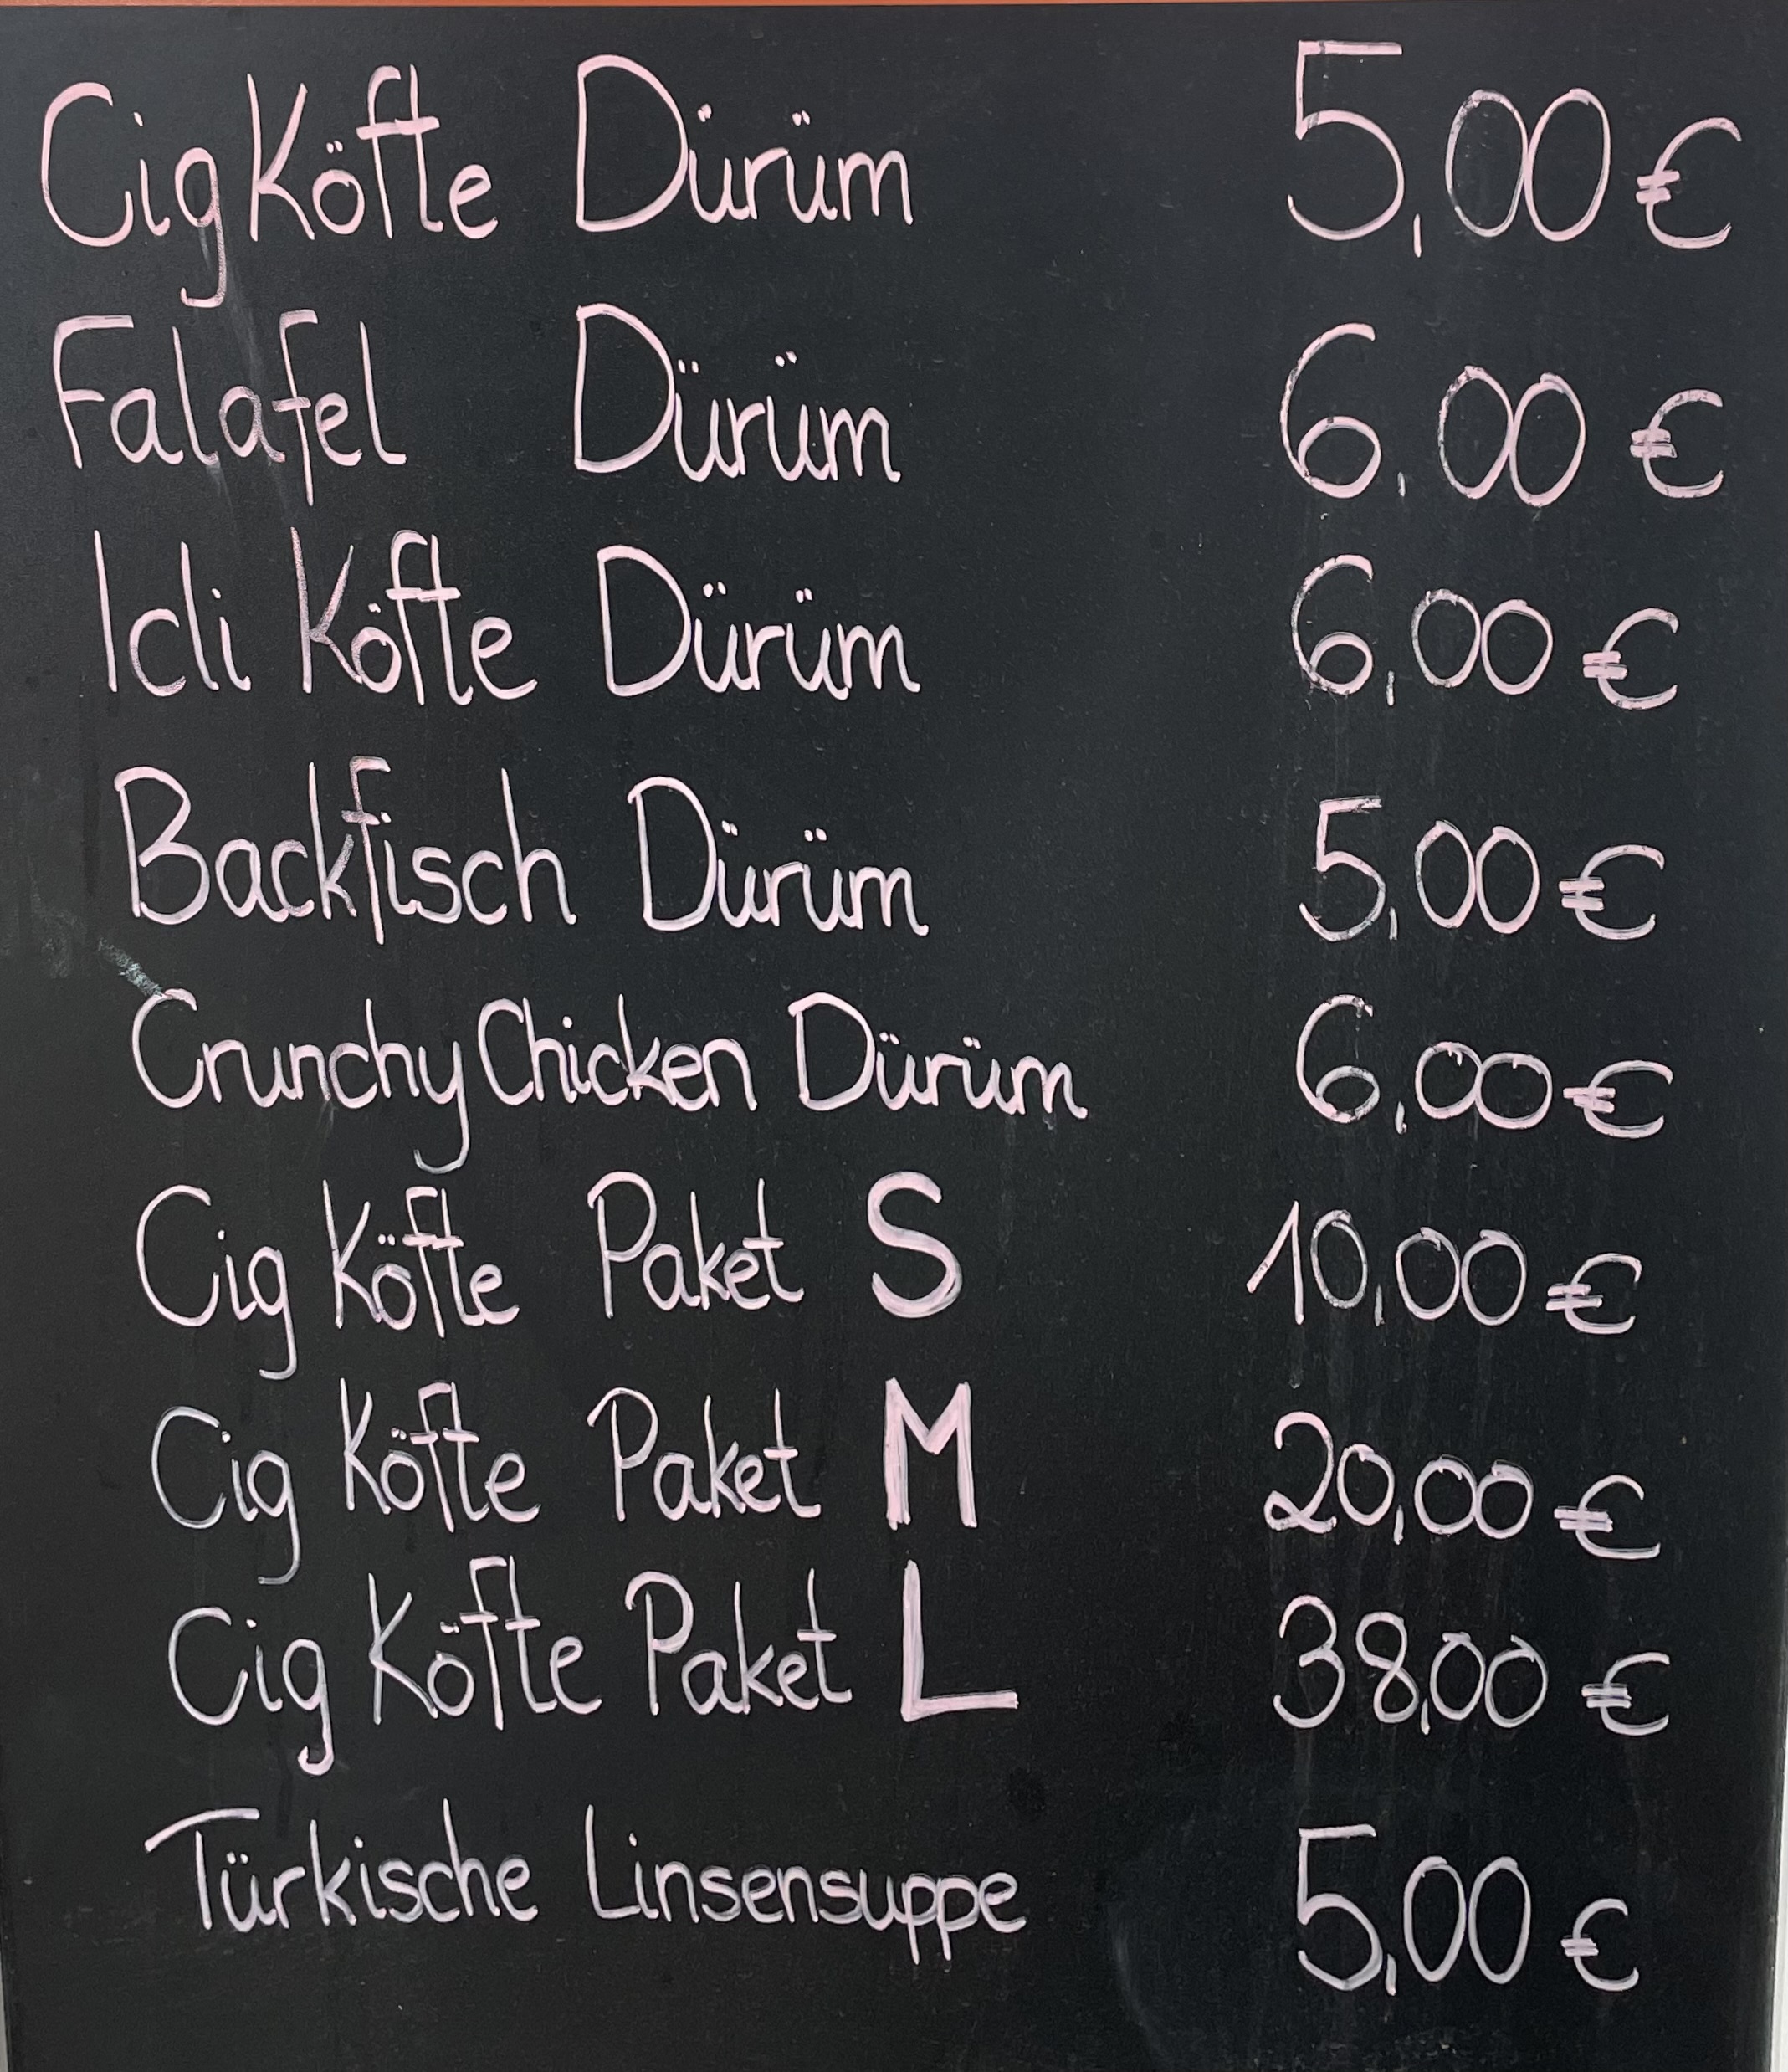 Cig Köfte Dürüm 5,00 €
Falafel Dürüm 6,00 €
Icli Köfte Dürüm 6,00 €
Backfisch Dürüm 5,00 €
Crunchy Chicken Dürüm 6,00 €
Cig Köfte Paket S 10,00 €
Cig Köfte Paket M 20,00 €
Cig Köfte Paket L 38,00 €
Türkische Linsensuppe 5,00 €